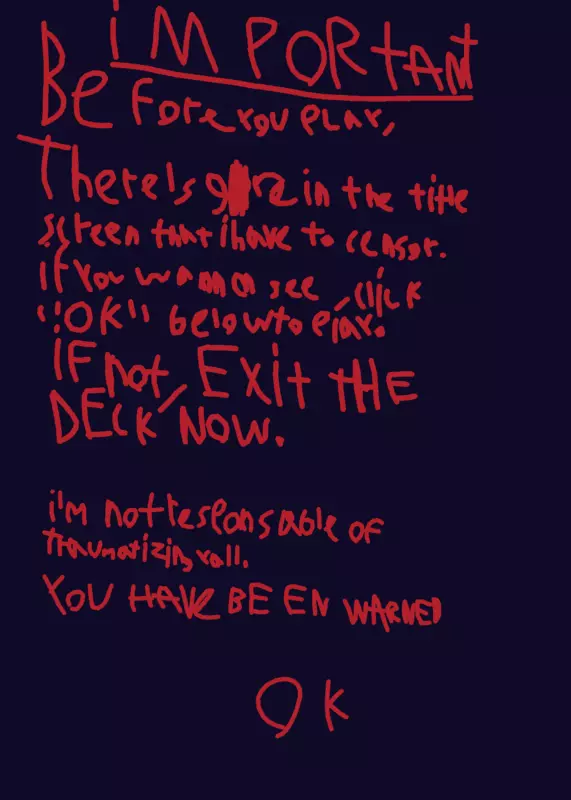 iMPORtANt
BeFore you PLAY,
There's gore in the title
screen that i have to censor.
if You wanna see, click
"OK" below to play.
IF not, Exit THE
DECK NOW.
i'm not responsable of
traumatizing yall.
YOU HAVE BEEN WARNED
OK